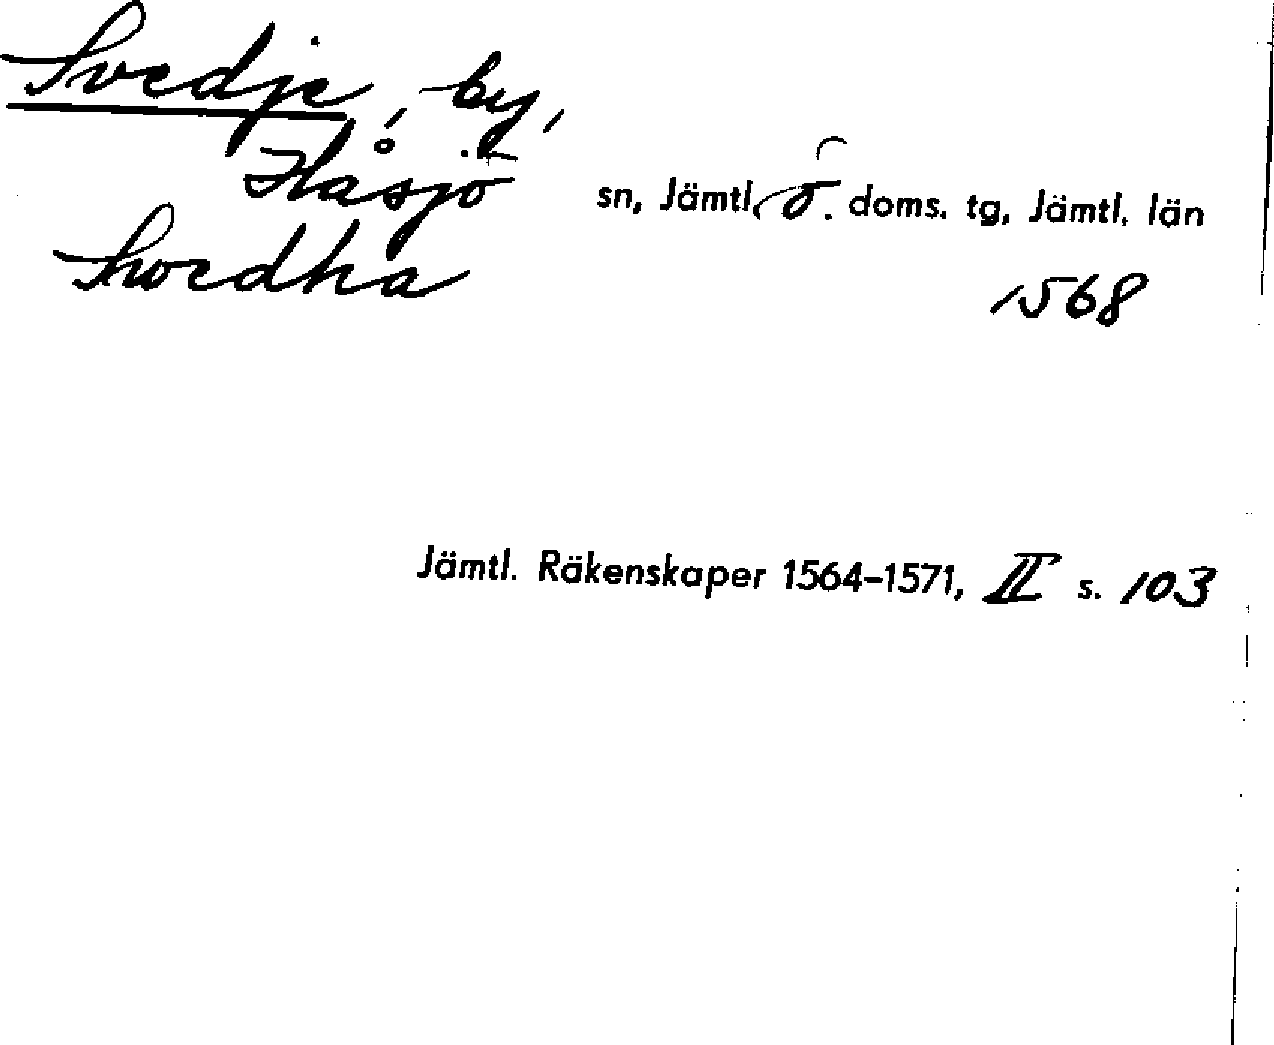 Svedje, by,
Håsjö sn, Jämtl. ö. doms. tg, Jämtl. län
Swedha 1568
Jämtl. Räkenskaper 1564-1571, II s. 103